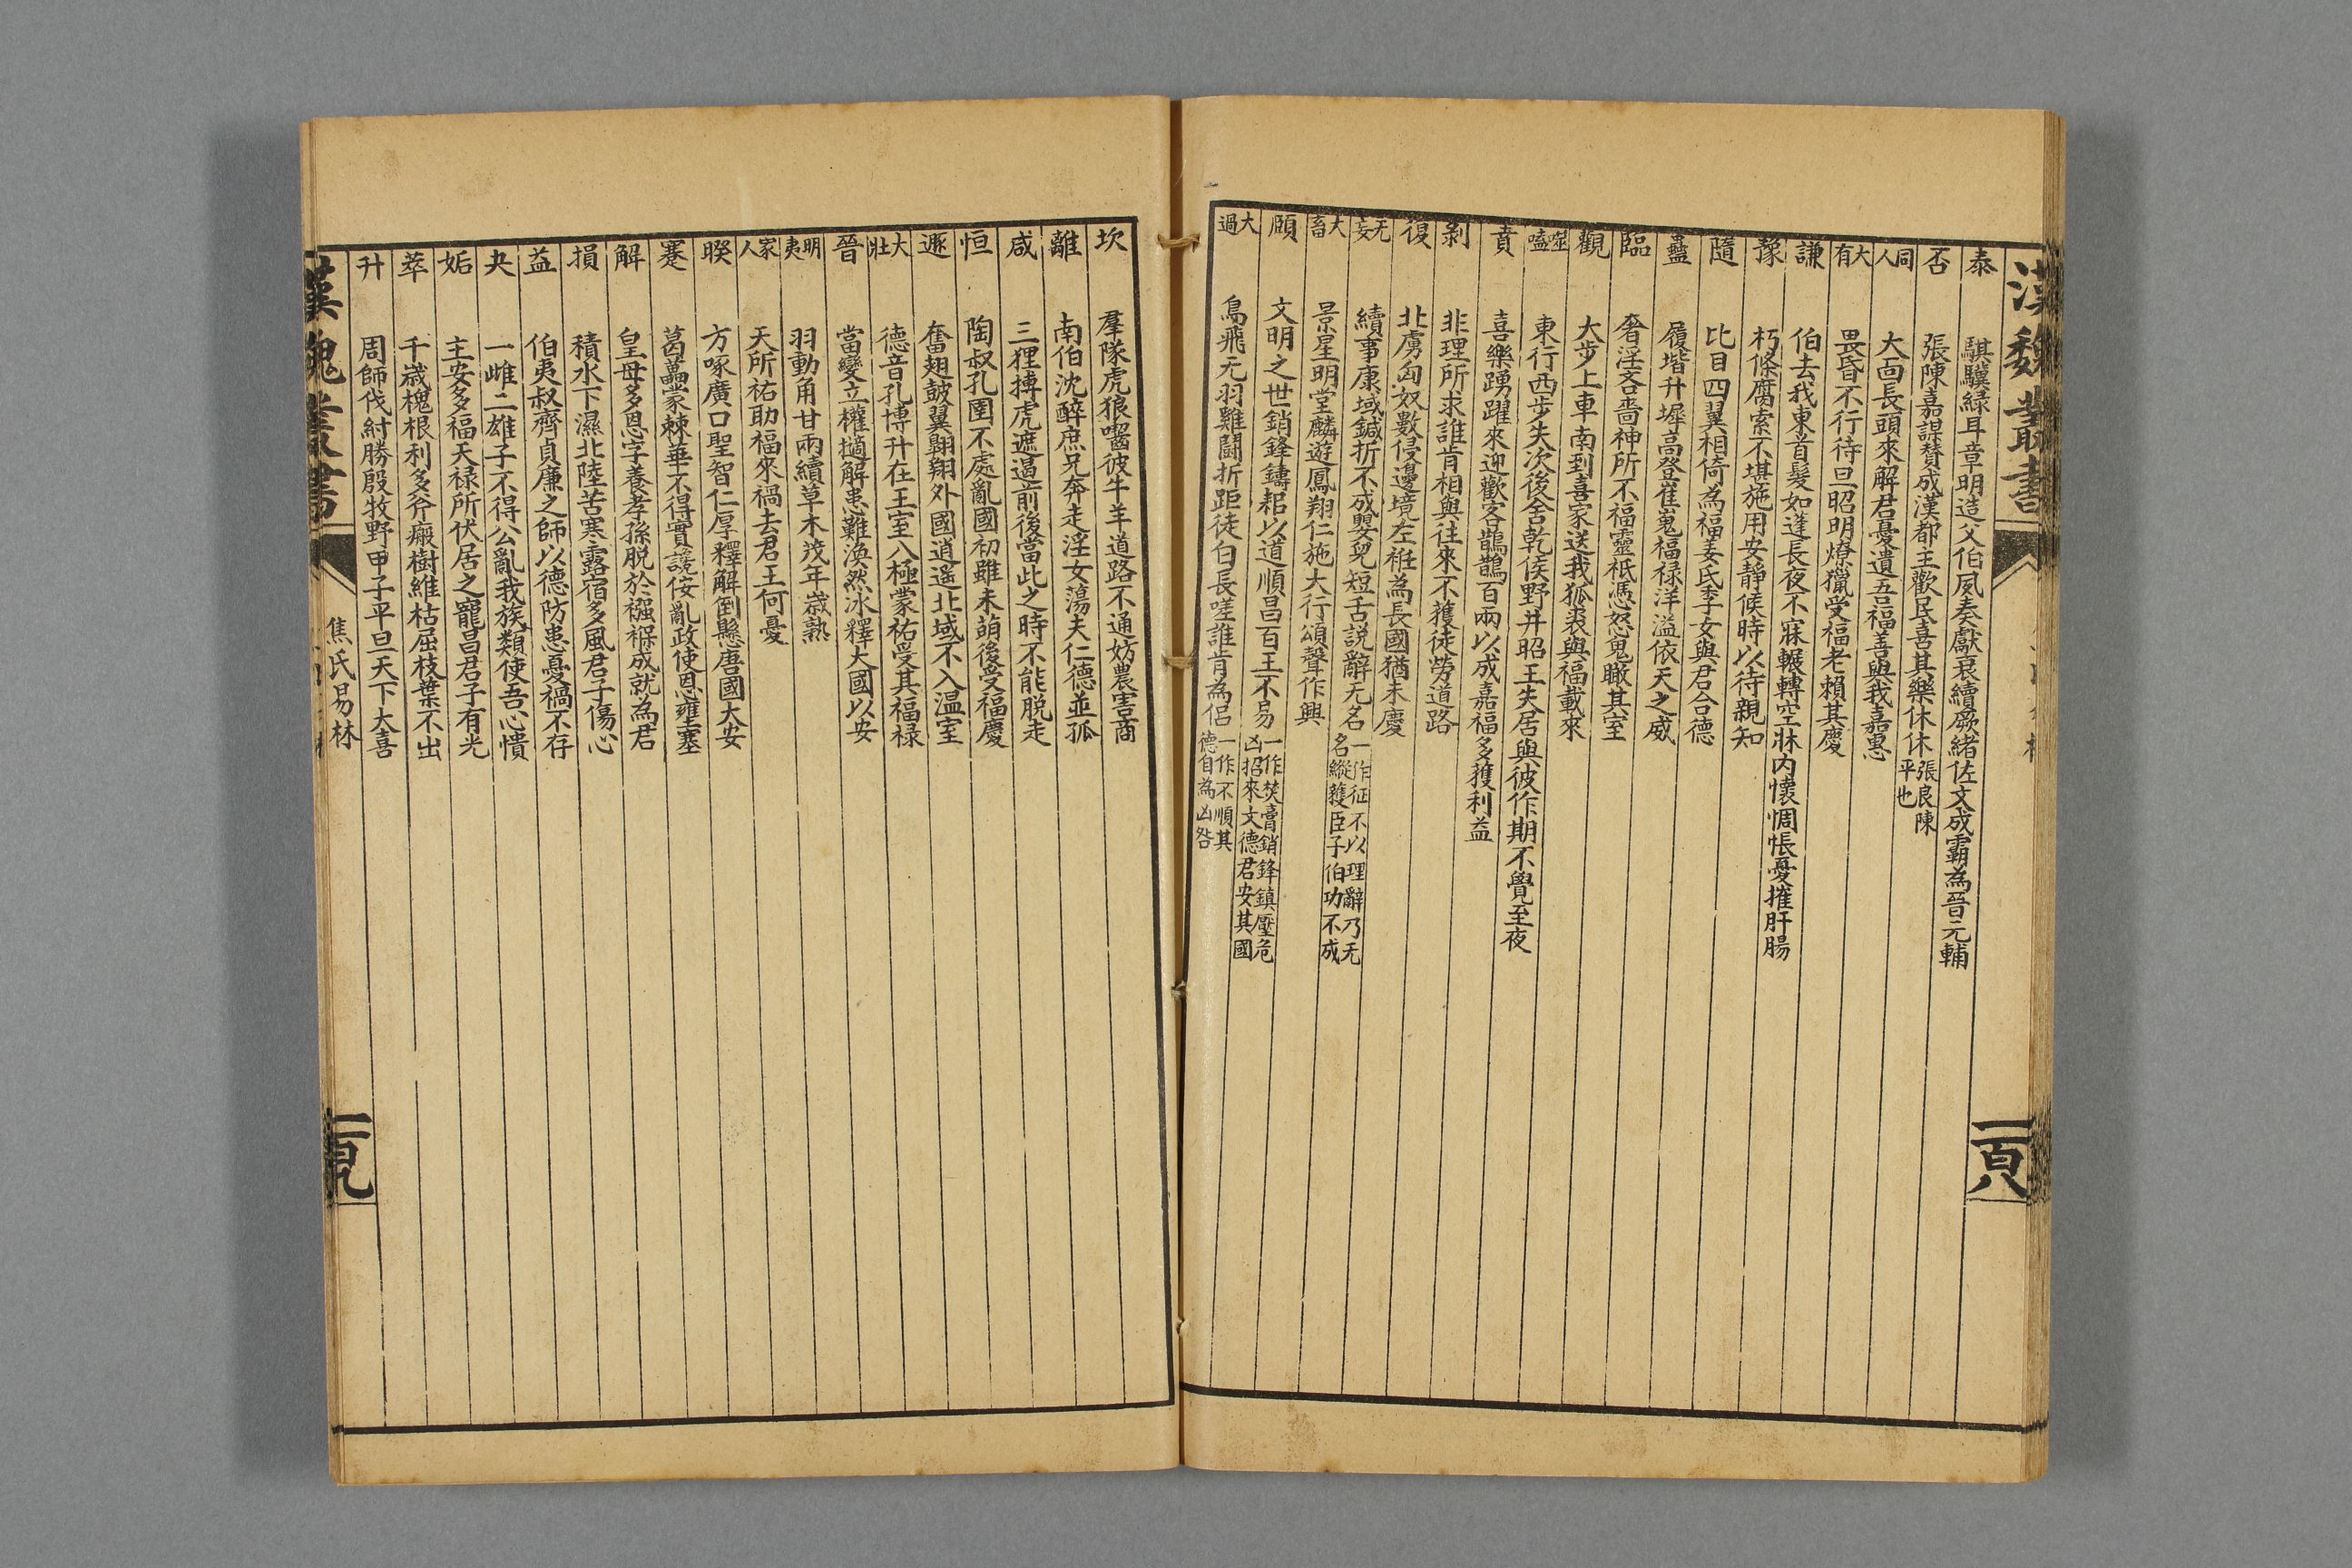 漢魏叢書
一百八
泰 騏驥綠耳章明造父伯夙奏獻衰續厥緒佐文成霸為晉元輔
否 張陳嘉謀贊成漢都主歡民喜其樂休休 張良陳平也
同人 大面長頭來解君憂遺吾福善與我嘉惠
大有 畏昏不行待旦昭明燎獵受福老賴其慶
謙 伯去我東首髮如蓬長夜不寐輾轉空牀内懷惆悵憂摧肝腸
豫 朽條腐索不堪施用安靜候時以待親知
隨 比目四翼相倚為福姜氏季女與君合德
蠱 履堦升墀高登崔嵬福禄洋溢依天之威
臨 奢淫吝嗇神所不福靈祗憑怒鬼瞰其室
觀 大步上車南到喜家送我狐裘與福載來
噬嗑 東行西步失次後舍乾侯野井昭王失居與彼作期不覺至夜
賁 喜樂踴躍來迎歡客鵲鵲百兩以成嘉福多獲利益
剥 非理所求誰肯相與往來不獲徒勞道路
復 北虜匈奴數侵邊境左袵為長國猶未慶
无妄 續事康域鍼折不成嬰兒短舌説辭无名 一作征不以理辭乃无名縱獲臣子伯功不成
大畜 景星明堂麟遊鳳翔仁施大行頌聲作興
頤 文明之世銷鋒鑄耜以道順昌百王不易 一作焚膏銷鋒鎮壓危凶招來文德君安其國
大過 鳥飛无羽雞鬪折距徒自長嗟誰肯為侣 一作不順其德自為凶咎
坎 羣隊虎狼嚙彼牛羊道路不通妨農害商
離 南伯沈醉庶兄奔走淫女蕩夫仁德並孤
咸 三狸搏虎遮遏前後當此之時不能脱走
恒 陶叔孔圉不處亂國初雖未萌後受福慶
遯 奮翅鼓翼翺翔外國逍遥北域不入温室
大壯 德音孔博升在王室八極蒙祐受其福禄
晉 當變立權擿解患難渙然冰釋大國以安
明夷 羽動角甘雨續草木茂年歲熟
家人 天所祐助福來禍去君王何憂
睽 方啄廣口聖智仁厚釋解倒懸唐國大安
蹇 葛藟蒙棘華不得實讒佞亂政使恩壅塞
解 皇母多恩字養孝孫脱於襁褓成就為君
損 積水下濕北陸苦寒露宿多風君子傷心
益 伯夷叔齊貞廉之師以德防患憂禍不存
夬 一雌二雄子不得公亂我族類使吾心憒
姤 主安多福天禄所伏居之寵昌君子有光
萃 千歲槐根利多斧瘢樹維枯屈枝葉不出
升 周師伐紂勝殷牧野甲子平旦天下大喜
漢魏叢書
焦氏易林
一百九